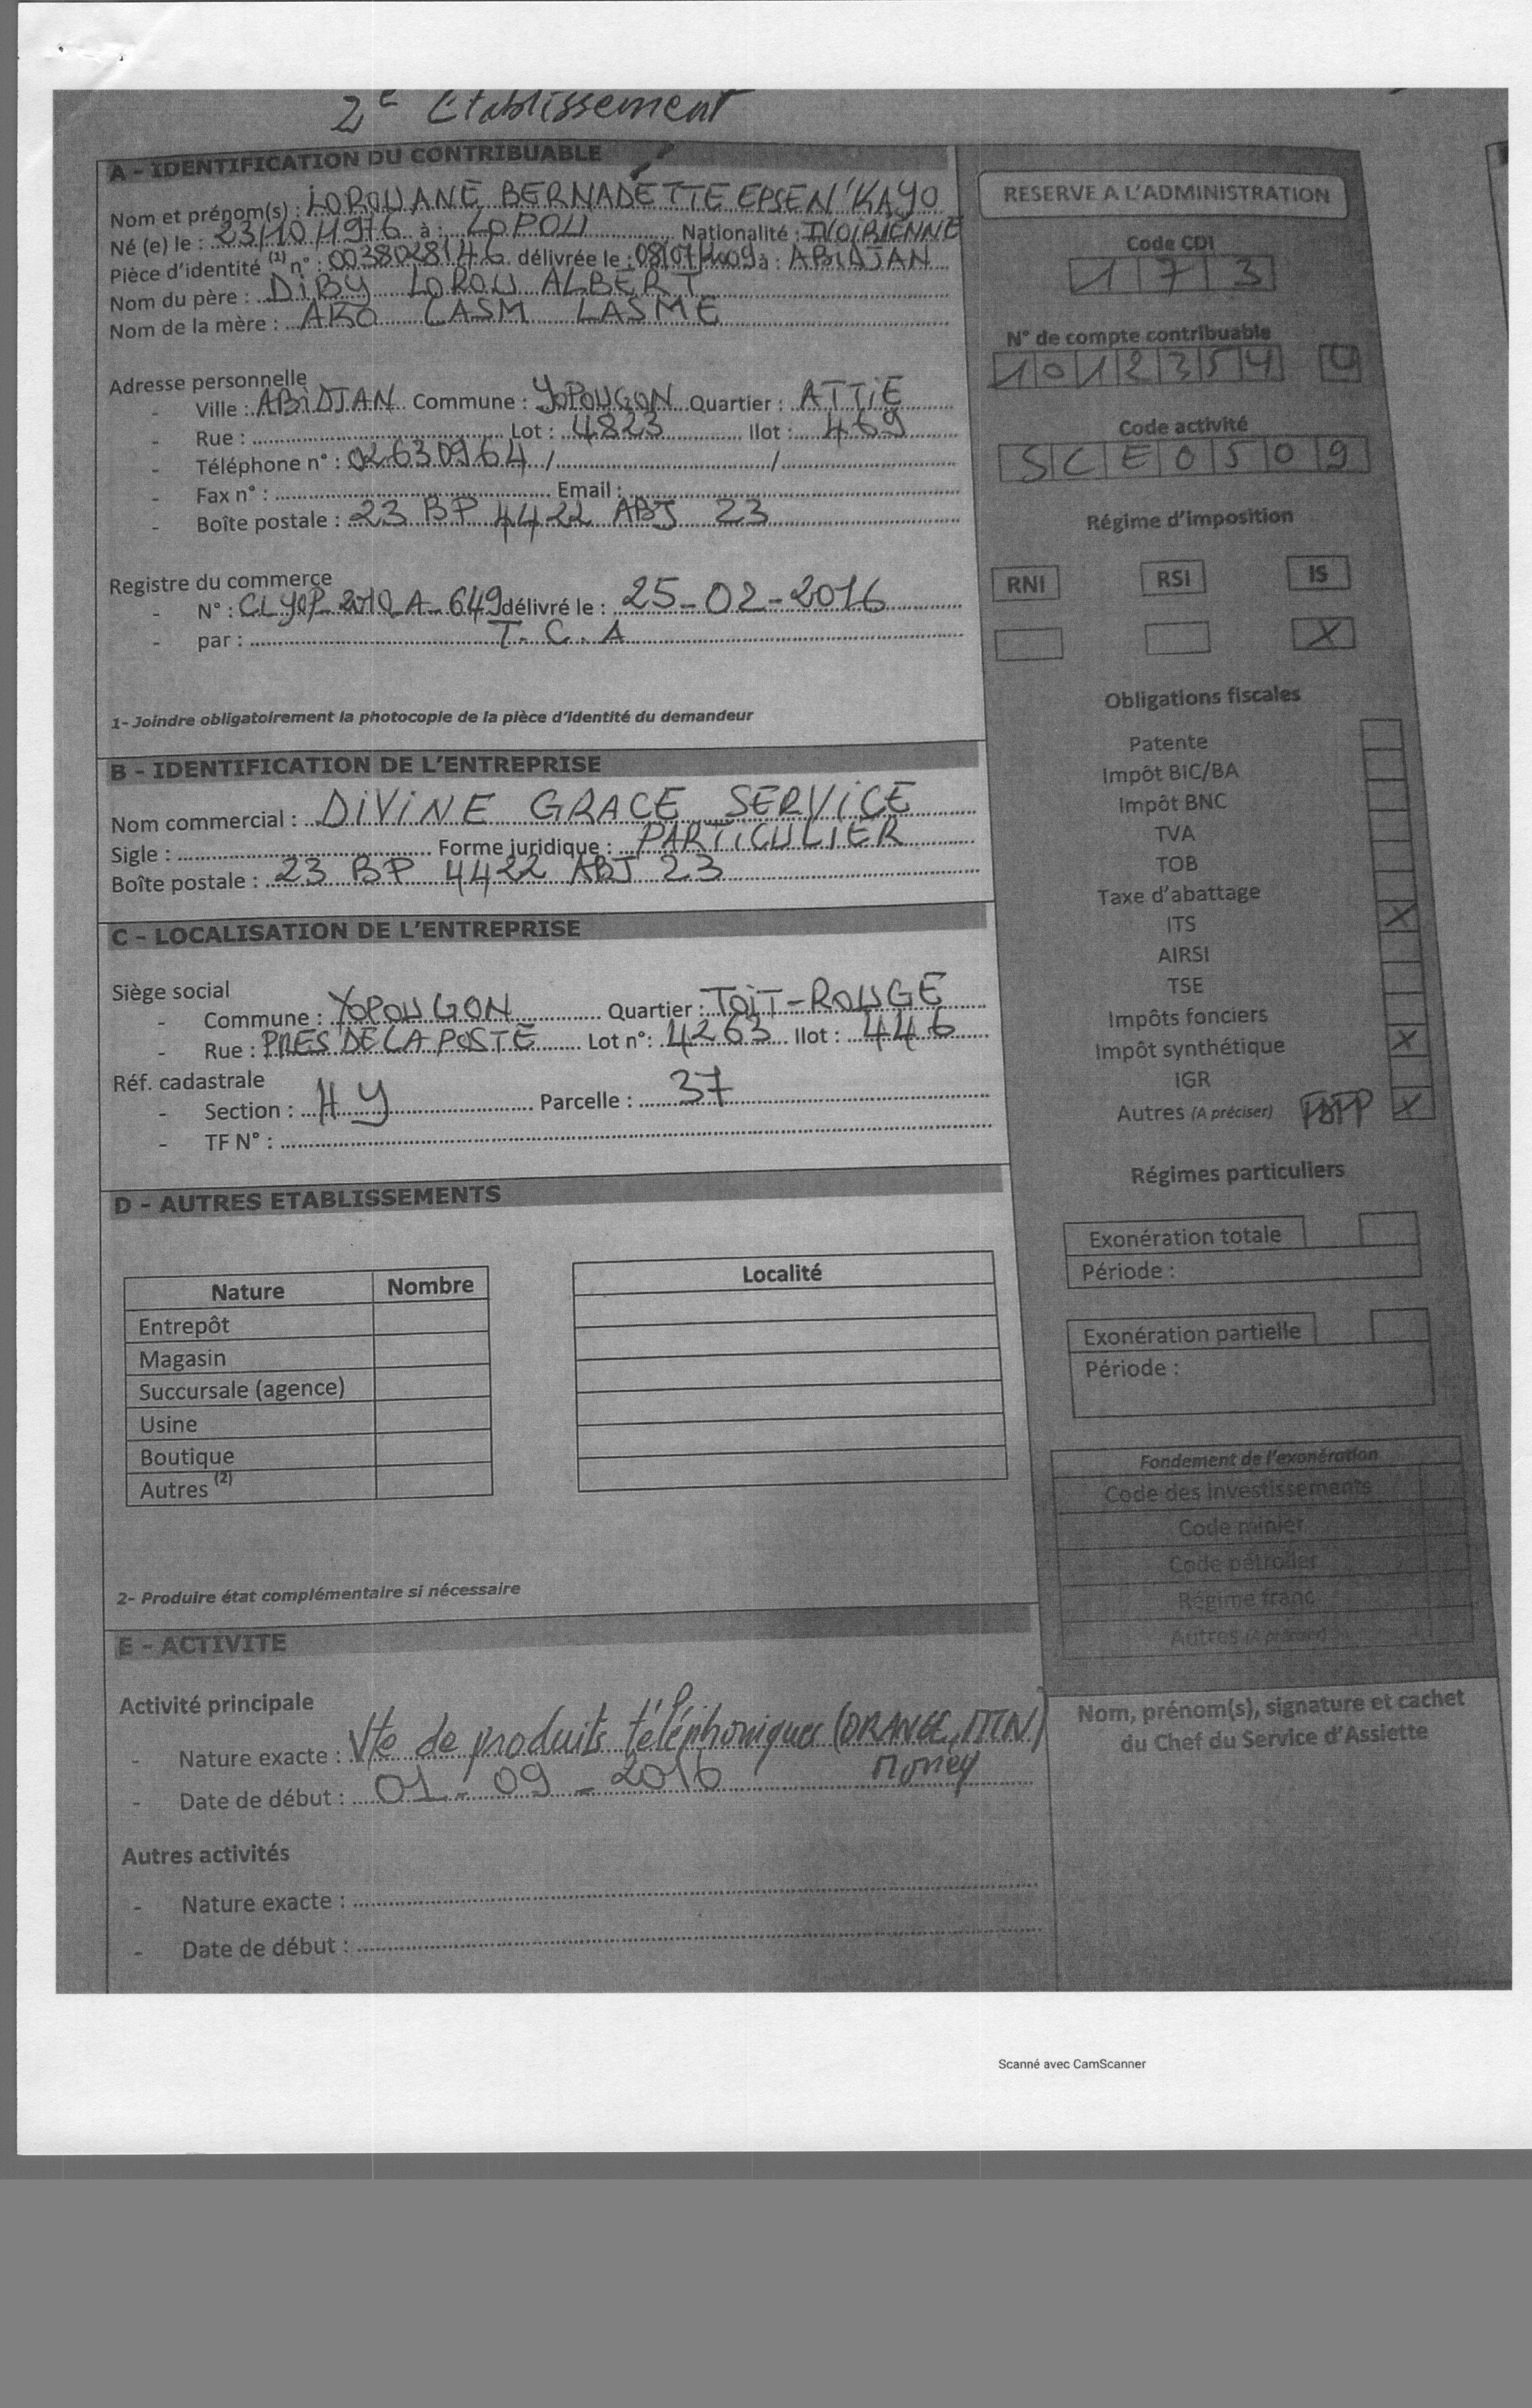 2e Etablissement
A - IDENTIFICATION DU CONTRIBUABLE
Nom et prénom(s) : LOROUANE BERNADETTE EPSE N'KAYO
Né (e) le : 23/10/1976 à : LOPOU Nationalité : IVOIRIENNE
Pièce d'identité (1) n° : 0038028146 délivrée le : 08/07/2009 à : ABIDJAN
Nom du père : DIBY LOROU ALBERT
Nom de la mère : AKO LASM LASME
Adresse personnelle
- Ville : ABIDJAN Commune : YOPOUGON Quartier : ATTIE
- Rue : Lot : 4823 Ilot : 469
- Téléphone n° : 02630964 / /
- Fax n° : Email :
- Boîte postale : 23 BP 4422 ABJ 23
Registre du commerce
- N° : CLYOP 2010-A-649 délivré le : 25-02-2016
- par : T.C.A
1- Joindre obligatoirement la photocopie de la pièce d'identité du demandeur
B - IDENTIFICATION DE L'ENTREPRISE
Nom commercial : DIVINE GRACE SERVICE
Sigle : Forme juridique : PARTICULIER
Boîte postale : 23 BP 4422 ABJ 23
C - LOCALISATION DE L'ENTREPRISE
Siège social
- Commune : YOPOUGON Quartier : TOIT-ROUGE
- Rue : PRES DE LA POSTE Lot n°: 4263 Ilot : 446
Réf. cadastrale
- Section : HY Parcelle : 37
- TF N° :
D - AUTRES ETABLISSEMENTS
Nature Nombre Localité
Entrepôt
Magasin
Succursale (agence)
Usine
Boutique
Autres (2)
2- Produire état complémentaire si nécessaire
E - ACTIVITE
Activité principale
- Nature exacte : Vte de produits téléphoniques (ORANGE, MTN)
Money
- Date de début : 01-09-2016
Autres activités
- Nature exacte :
- Date de début :
RESERVE A L'ADMINISTRATION
Code CDI
1 7 3
N° de compte contribuable
1 0 1 2 3 5 4 U
Code activité
S C E 0 5 0 9
Régime d'imposition
RNI RSI IS
X
Obligations fiscales
Patente
Impôt BIC/BA
Impôt BNC
TVA
TOB
Taxe d'abattage
ITS X
AIRSI
TSE
Impôts fonciers
Impôt synthétique X
IGR
Autres (A préciser) X
Régimes particuliers
Exonération totale
Période :
Exonération partielle
Période :
Fondement de l'exonération
Code des investissements
Code minier
Code pétrolier
Régime franc
Autres (A préciser)
Nom, prénom(s), signature et cachet
du Chef du Service d'Assiette
Scanné avec CamScanner